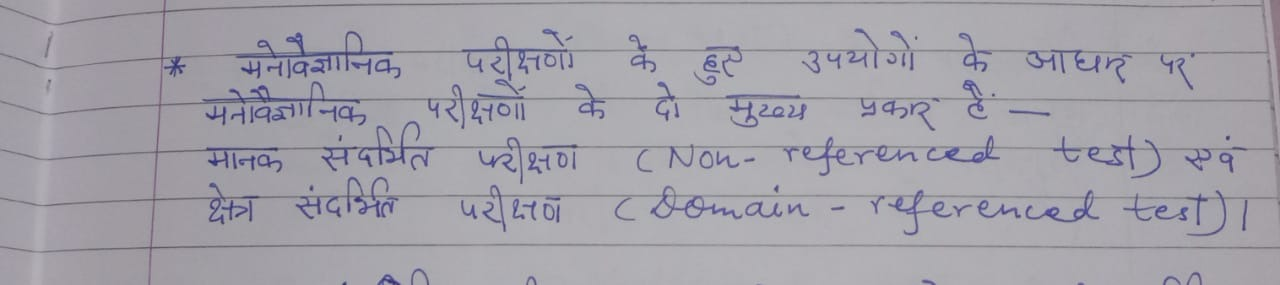 * मनोवैज्ञानिक परीक्षणों के हुए उपयोगों के आधार पर
मनोवैज्ञानिक परीक्षणों के दो मुख्य प्रकार हैं —
मानक संदर्भित परीक्षण (Non-referenced test) एवं
क्षेत्र संदर्भित परीक्षण (Domain-referenced test)।